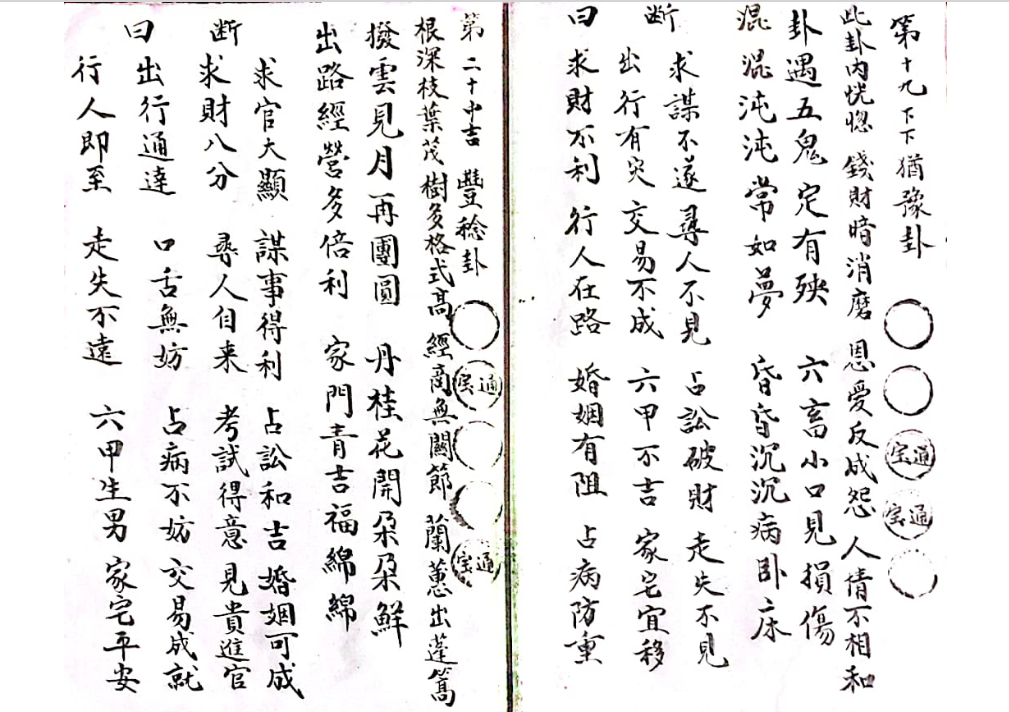 第十九下下猶豫卦
通宝
通宝
此卦内恍惚 錢財暗消磨 恩愛反成怨 人情不相和
卦遇五鬼定有殃 六畜小口見損傷
混混沌沌常如夢 昏昏沉沉病卧床
断曰
求謀不遂 尋人不見 占訟破財 走失不見
出行有灾 交易不成 六甲不吉 家宅宜移
求財不利 行人在路 婚姻有阻 占病防重
第二十中吉 豐稔卦
通宝
通宝
根深枝葉茂 樹多格式高 經商無關節 蘭蕙出蓬篙
撥雲見月再團圓 丹桂花開朶朶鮮
出路經營多倍利 家門青吉福綿綿
断曰
求官大顯 謀事得利 占訟和吉 婚姻可成
求財八分 尋人自来 考試得意 見貴進官
出行通達 口舌無妨 占病不妨 交易成就
行人即至 走失不遠 六甲生男 家宅平安